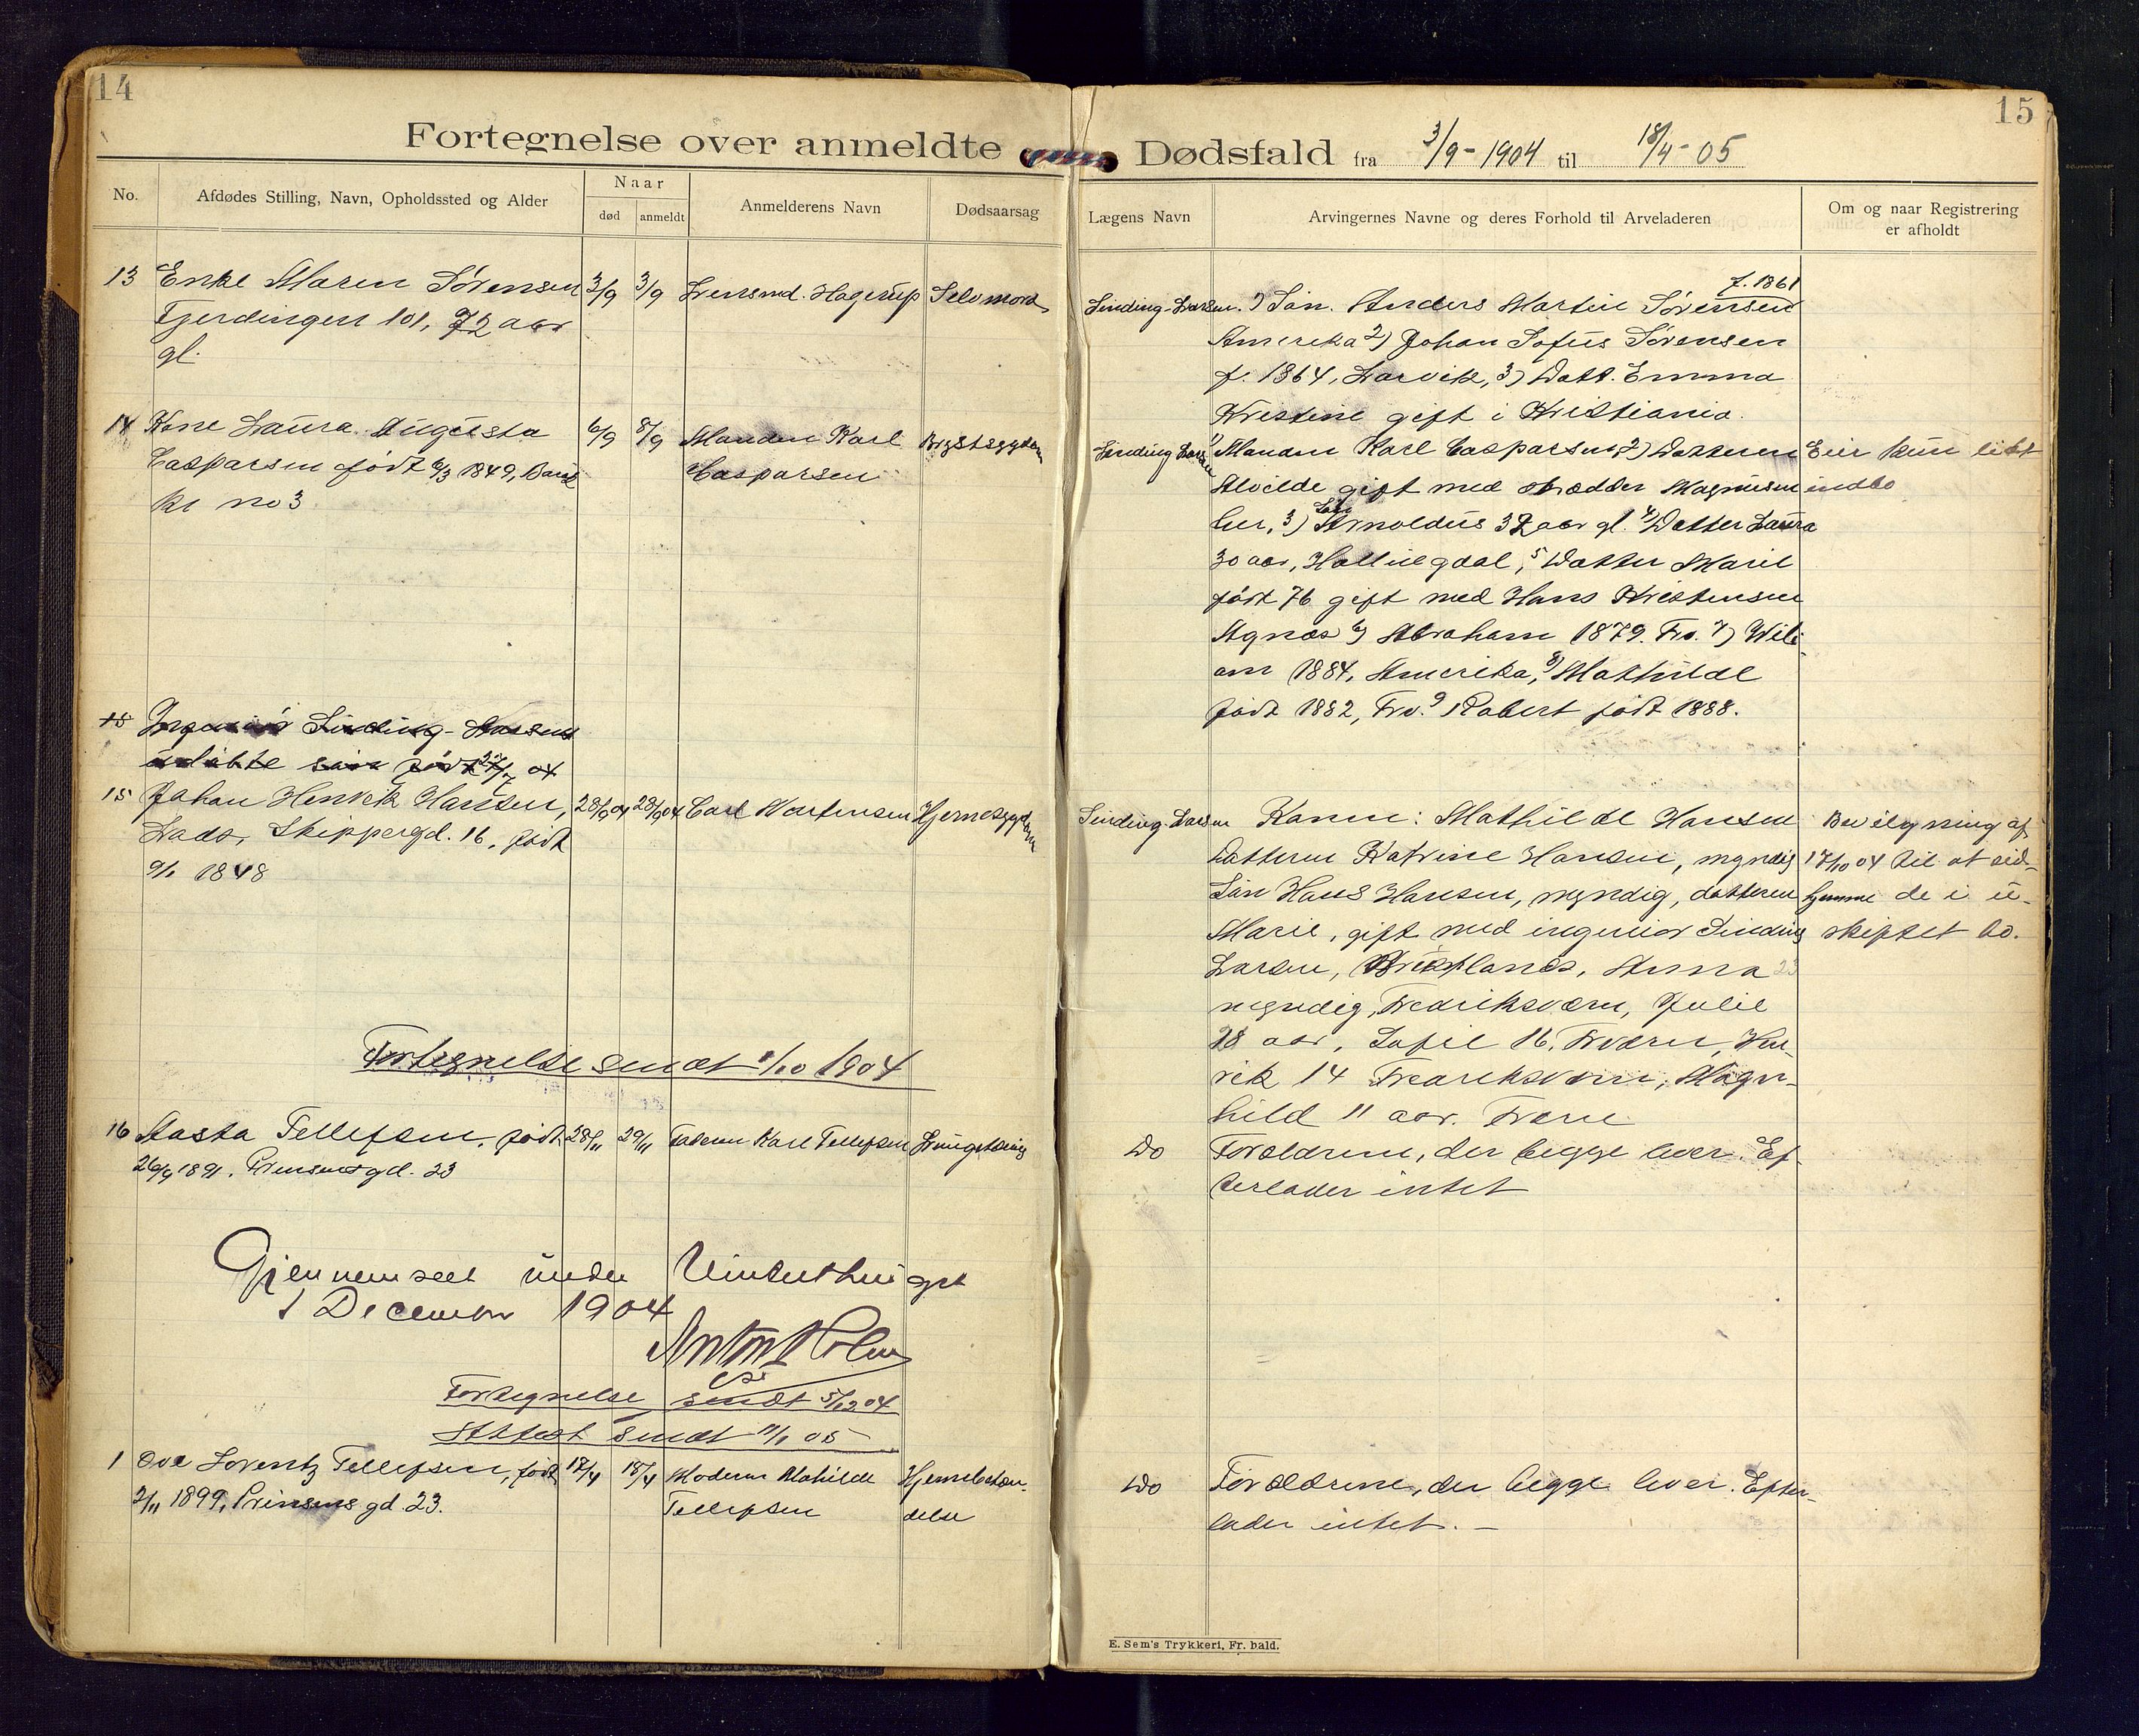 14
Fortegnelse over anmeldte
No.
Afdødes Stilling, Navn, Opholdssted og Alder
Naar
død
anmeldt
Anmelderens Navn
Dødsaarsag
13 Enke Maren Sørensen 3/9 3/9 Lensmd. Hagerup Selvmord
Tjerdingen 101, 72 aar
gl.
14 Kone Laura Augusta 6/9 8/9 Manden Karl Brystsygdom
Casparsen født 6/3 1849, Casparsen
no 3
15 Sinding-
født 04
15 Johan Henrik Hansen, 28/9 04 28/9 04 Carl Mortensen Hjernesygdom
Lads, Skippergd. 16, født
9/1 1848
Fortegnelse sendt 1/10 1904
16 Aasta Tellefsen, født 28/11 29/11 Faderen Karl Tellefsen
26/9 1891, Prinsensgd. 23
Gjennemseet under Vinterthinget
1 December 1904
Anton Holm
Fortegnelse sendt 5/12 04
Attest sendt 11/1 05
1 Ove Lorentz Tellefsen, født 17/4 18/4 Moderen Mathilde Hjernebetæn-
2/11 1899, Prinsens gd. 23. Tellefsen delse
15
Dødsfald fra 3/9-1904 til 18/4-05
Lægens Navn
Arvingernes Navne og deres Forhold til Arveladeren
Om og naar Registrering
er afholdt
f. 1861
Sinding-Larsen. 1) Søn. Anders Martin Sørensen
Amerika 2) Johan Sofus Sørensen
f. 1864, Larvik, 3) Datt. Emma
Kristine gift i Kristiania.
Sinding Larsen 1) Manden Karl Casparsen 2) Datteren Eier kun lidt
Alvilde gift med Magnusen indbo
her, 3) Søn Arnoldus 32 aar gl. 4) Datter Laura
30 aar, Hallingdal, 5 Datter Marie
født 76 gift med Hans Kristensen
Agnæs 6) Abraham 1879. Frv. 7) Wili-
am 1884, Amerika, 8) Mathilde
født 1882, Frv. 9 Robert født 1888.
Sinding-Larsen Konen: Mathilde Hansen Bevilgning af
Datteren Katrine Hansen, myndig 17/10 04 til at sid-
Søn Hans Hansen, myndig, datteren de i u-
Marie, gift med ingeniør Sinding skiftet bo.
Larsen, Anna 23
myndig, Fredriksværn, Julie
18 aar, Sofie 16, Fværn, Hen-
rik 14 Fredriksværn, Magn-
hild 11 aar. Fværn
Do Forældrene, der begge lever. Ef-
terlader intet
Do Forældrene, der begge lever. Efter-
lader intet. —
E. Sem's Trykkeri, Fr. hald.